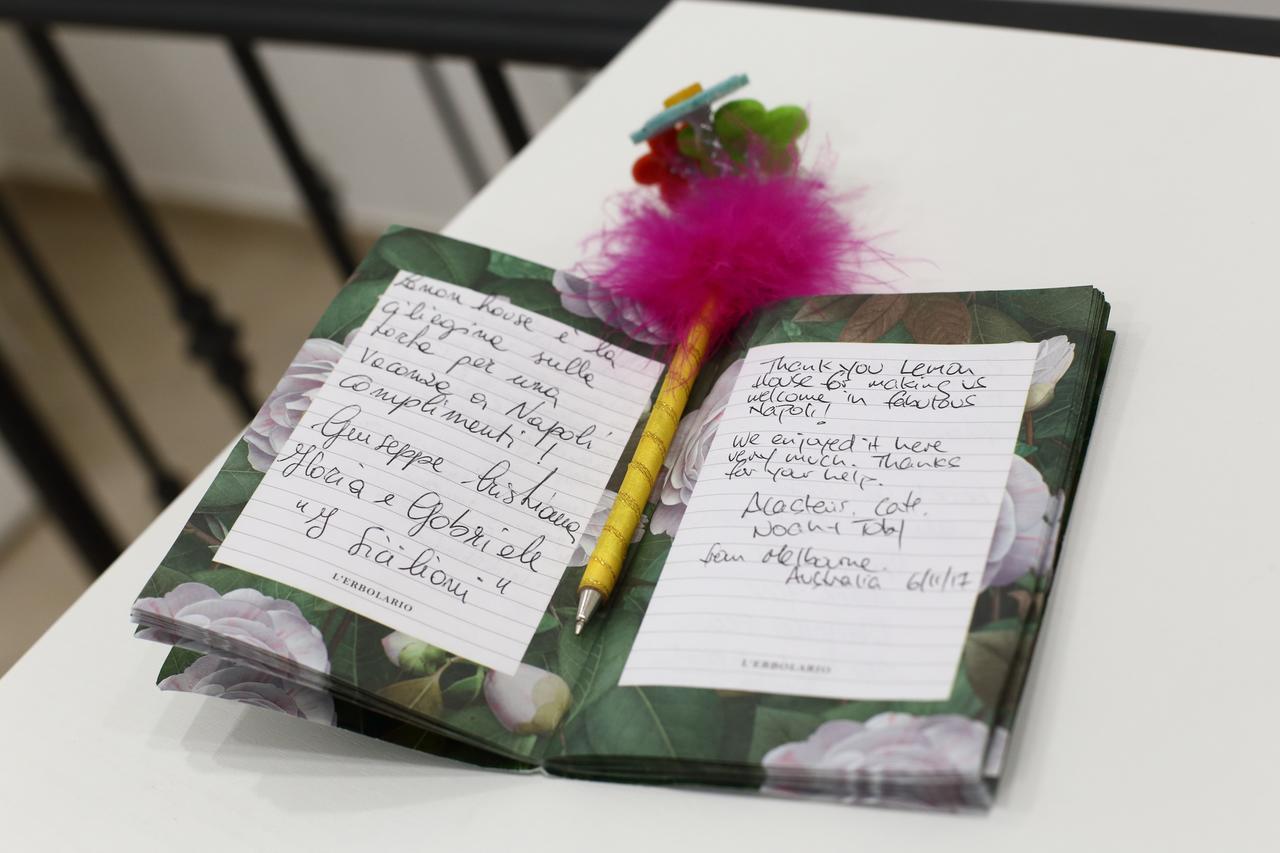 house è la
ciliegina sulla
torta per una
vacanza a Napoli
complimenti!
Giuseppe Cristiana
Gloria e Gabriele
"I Siciliani"
L'ERBOLARIO
Thank you Lemon
House for making us
welcome in fabulous
Napoli!
We enjoyed it here
very much. Thanks
for your help.
Alasteir. Cate.
Noah + Toby
from Melbourne.
Australia 6/11/17
L'ERBOLARIO